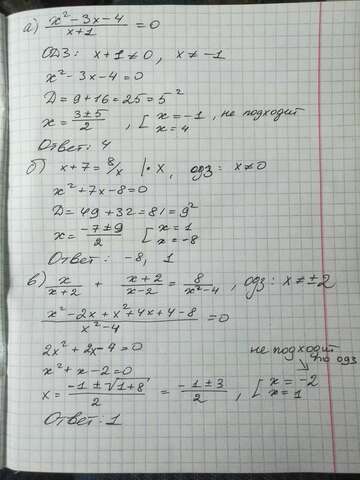 а) (x² - 3x - 4)/(x + 1) = 0
ОДЗ: x + 1 ≠ 0, x ≠ -1
x² - 3x - 4 = 0
D = 9 + 16 = 25 = 5²
x = (3 ± 5)/2, [ x = -1, не подходит
x = 4
Ответ: 4
б) x + 7 = 8/x |·x, одз: x ≠ 0
x² + 7x - 8 = 0
D = 49 + 32 = 81 = 9²
x = (-7 ± 9)/2 [ x = 1
x = -8
Ответ: -8, 1
в) x/(x + 2) + (x + 2)/(x - 2) = 8/(x² - 4), одз: x ≠ ±2
(x² - 2x + x² + 4x + 4 - 8)/(x² - 4) = 0
2x² + 2x - 4 = 0
не подходит
по одз
x² + x - 2 = 0
x = (-1 ± √(1 + 8))/2 = (-1 ± 3)/2, [ x = -2
x = 1
Ответ: 1